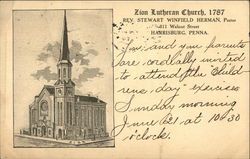 Zion Lutheran Church, 1787
REV. STEWART WINFIELD HERMAN, Pastor
Walnut Street
HARRISBURG, PENNA.
You and your parents
are cordially invited
to attend the "Child
rens day" exercises
Sunday morning
June 21 at 10:30
o'clock.